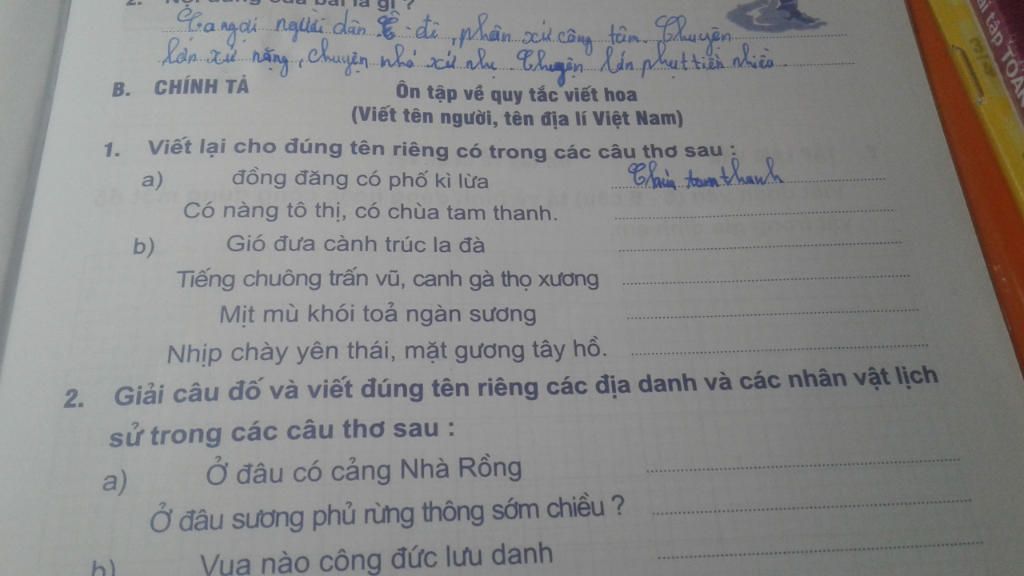 2. Nội dung của bài là gì ?
Ca ngợi người dân Ê-đê, phân xử công tâm. Chuyện
lớn xử nặng, chuyện nhỏ xử nhẹ. Chuyện lớn phạt tiền nhiều.
B. CHÍNH TẢ
Ôn tập về quy tắc viết hoa
(Viết tên người, tên địa lí Việt Nam)
1. Viết lại cho đúng tên riêng có trong các câu thơ sau :
a) đồng đăng có phố kì lừa
tam thanh
Có nàng tô thị, có chùa tam thanh.
b) Gió đưa cành trúc la đà
Tiếng chuông trấn vũ, canh gà thọ xương
Mịt mù khói toả ngàn sương
Nhịp chày yên thái, mặt gương tây hồ.
2. Giải câu đố và viết đúng tên riêng các địa danh và các nhân vật lịch
sử trong các câu thơ sau :
a) Ở đâu có cảng Nhà Rồng
Ở đâu sương phủ rừng thông sớm chiều ?
b) Vua nào công đức lưu danh
bài tập TOÁN